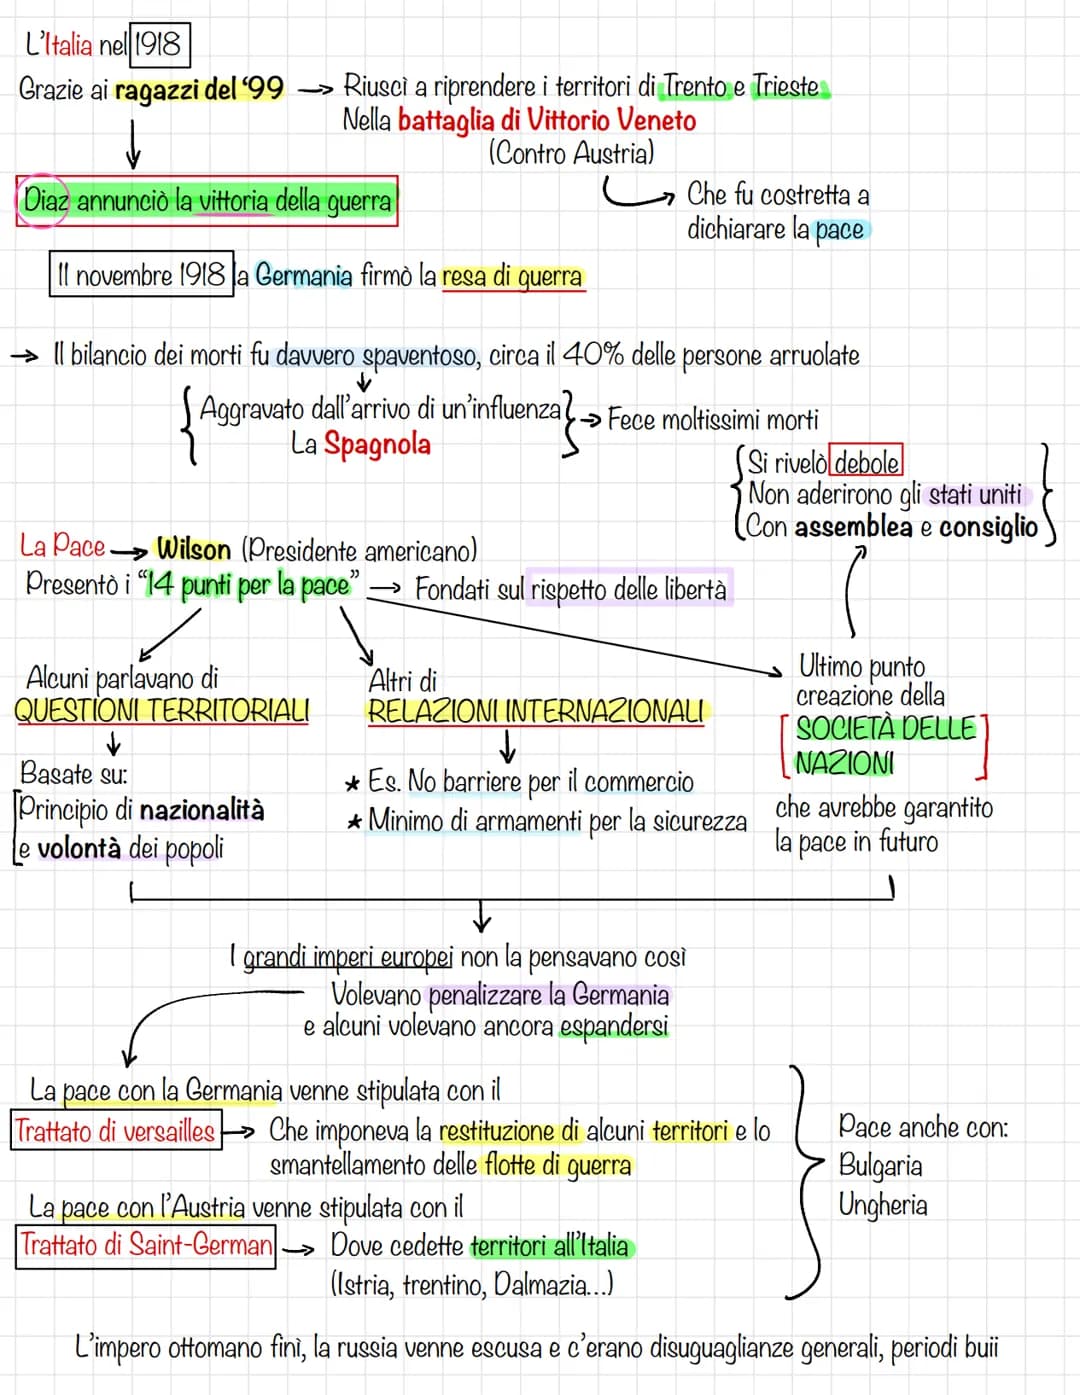 L'Italia nel 1918
Grazie ai ragazzi del '99 → Riuscì a riprendere i territori di Trento e Trieste
Nella battaglia di Vittorio Veneto
(Contro Austria)
Che fu costretta a
dichiarare la pace
Diaz annunciò la vittoria della guerra
11 novembre 1918 la Germania firmò la resa di guerra
→ Il bilancio dei morti fu davvero spaventoso, circa il 40% delle persone arruolate
Aggravato dall'arrivo di un'influenza → Fece moltissimi morti
La Spagnola
Si rivelò debole
Non aderirono gli stati uniti
Con assemblea e consiglio
La Pace → Wilson (Presidente americano)
Presentò i "14 punti per la pace" → Fondati sul rispetto delle libertà
Alcuni parlavano di
QUESTIONI TERRITORIALI
Basate su:
Principio di nazionalità
e volontà dei popoli
Altri di
RELAZIONI INTERNAZIONALI
★ Es. No barriere per il commercio
★ Minimo di armamenti per la sicurezza
Ultimo punto
creazione della
SOCIETÀ DELLE
NAZIONI
che avrebbe garantito
la pace in futuro
I grandi imperi europei non la pensavano così
Volevano penalizzare la Germania
e alcuni volevano ancora espandersi
La pace con la Germania venne stipulata con il
Trattato di versailles → Che imponeva la restituzione di alcuni territori e lo
smantellamento delle flotte di guerra
La pace con l'Austria venne stipulata con il
Trattato di Saint-German → Dove cedette territori all'Italia
(Istria, trentino, Dalmazia...)
Pace anche con:
Bulgaria
Ungheria
L'impero ottomano finì, la russia venne escusa e c'erano disuguaglianze generali, periodi buii